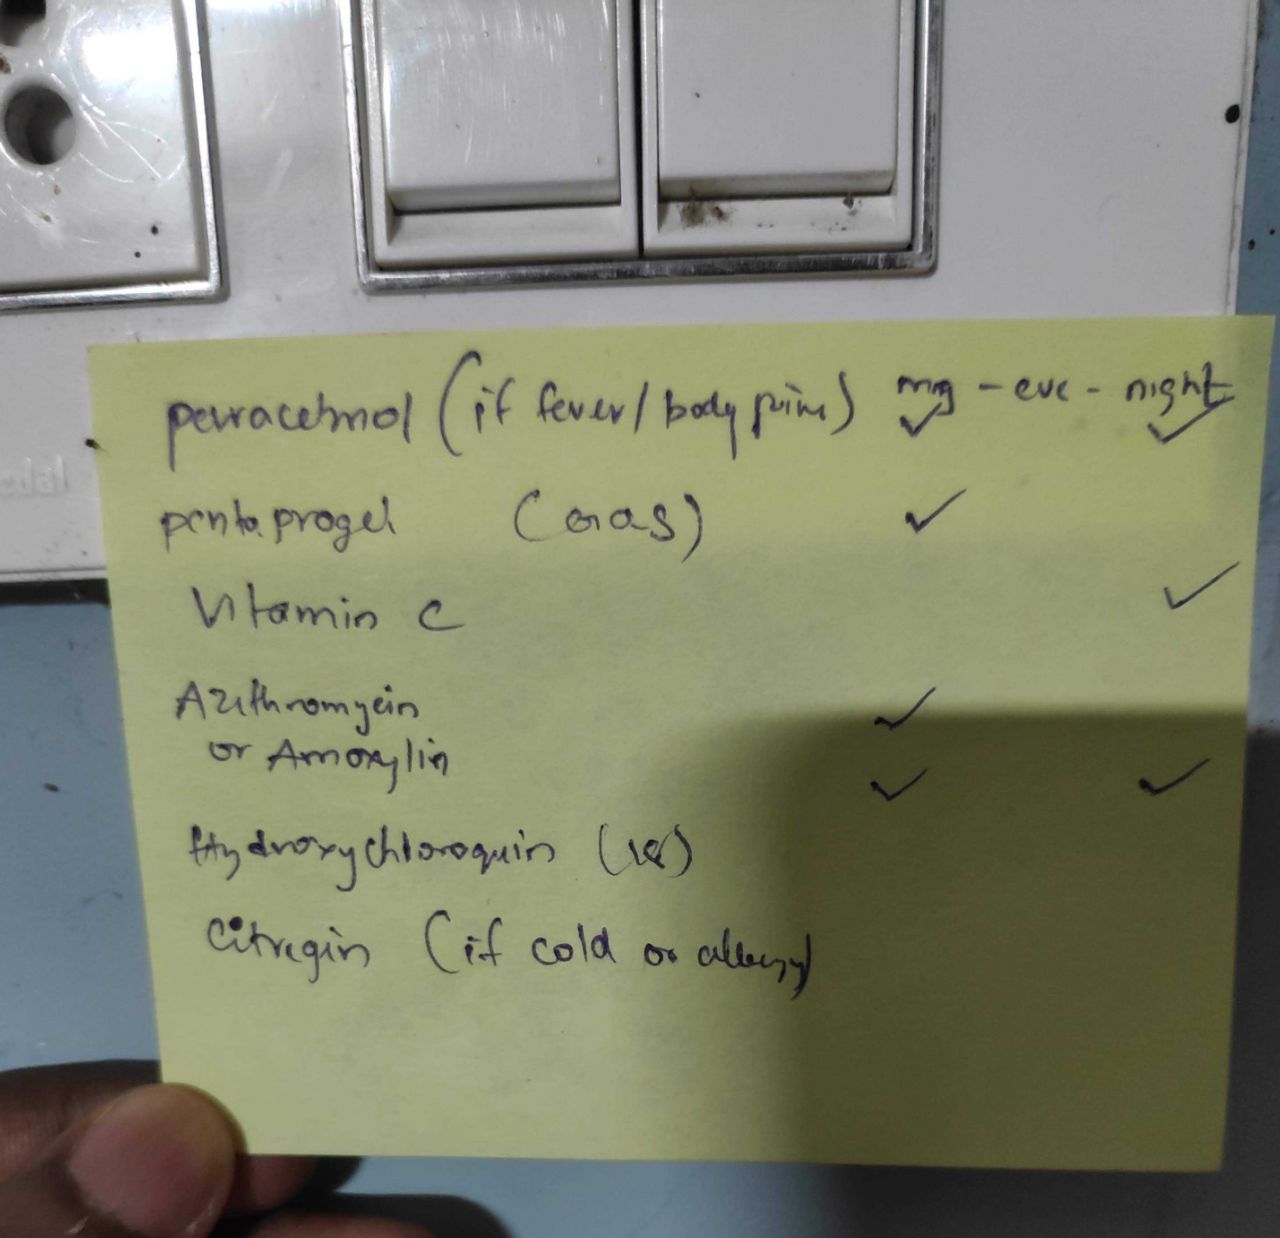 paracetmol (if fever/body pain) mrg - eve - night
✓ ✓
pentaprogel (Gas) ✓
Vitamin C ✓
Azithromycin ✓
or Amoxylin ✓ ✓
Hydroxychloroquin
Citregin (if cold or allergy)
edal